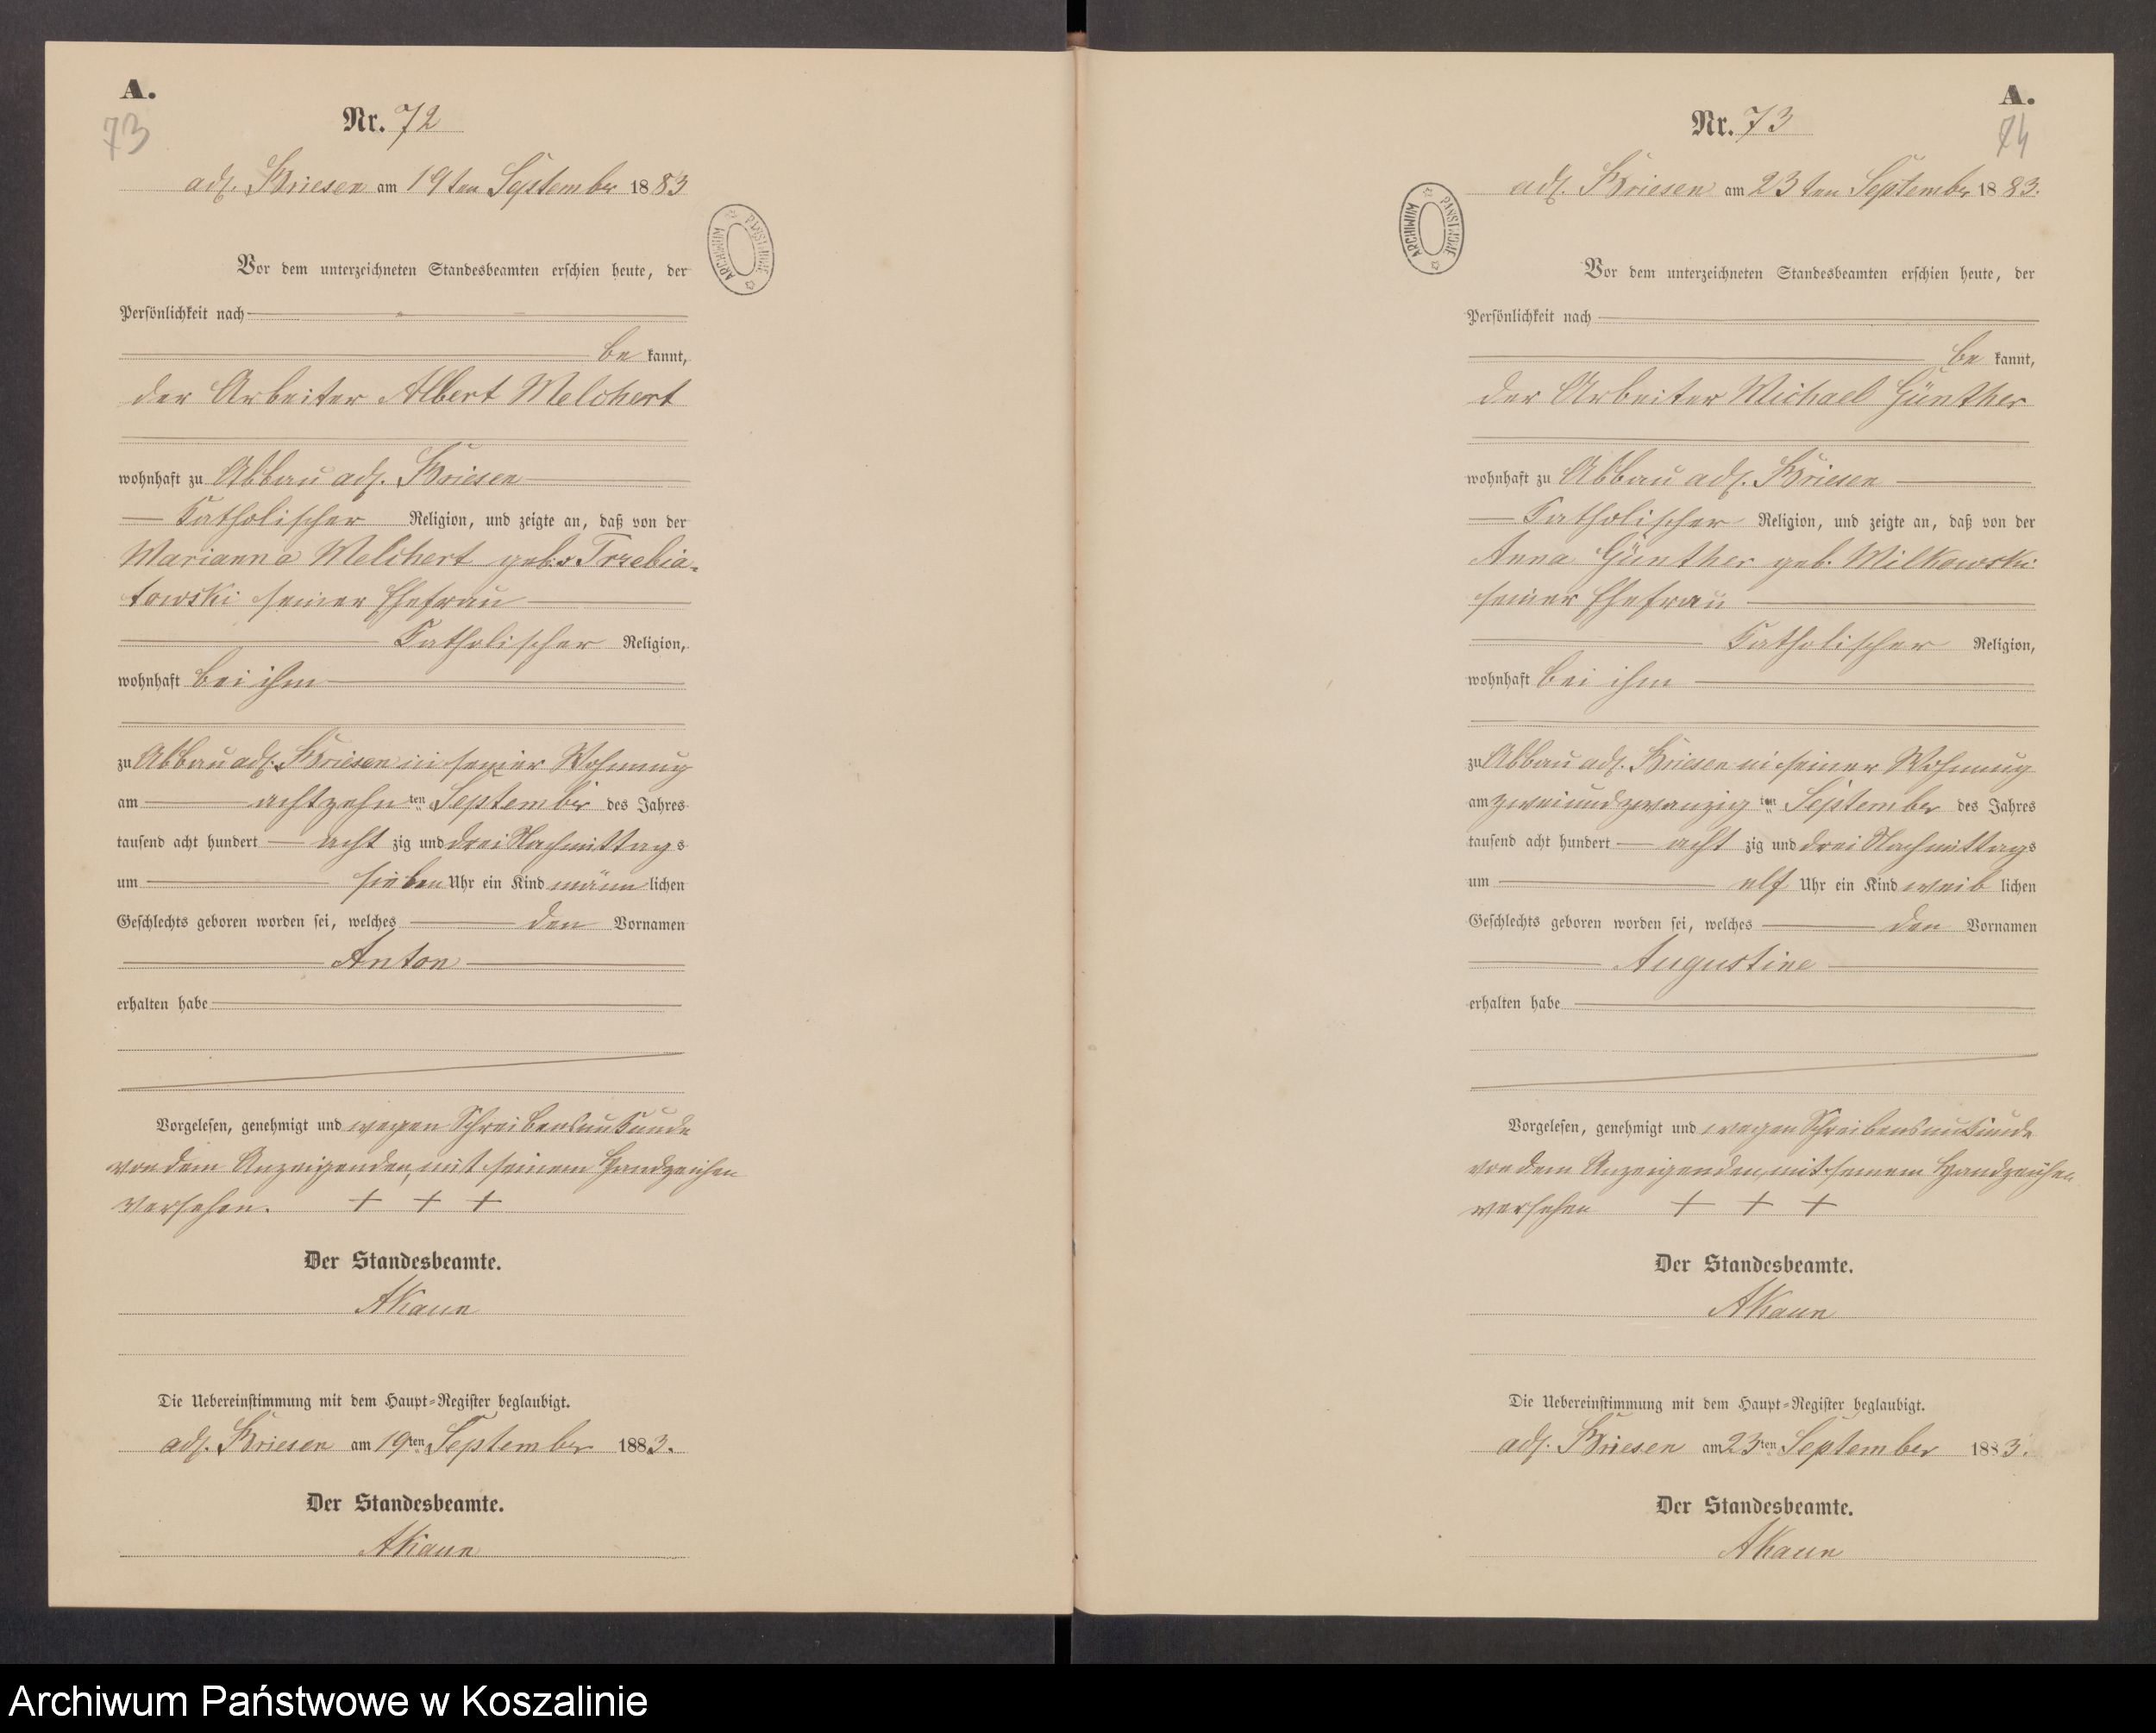 A.
73
Nr. 72
adl. Briesen am 19ten September 1883
ARCHIWUM PAŃSTWOWE
Vor dem unterzeichneten Standesbeamten erschien heute, der
Persönlichkeit nach
be kannt,
der Arbeiter Albert Melchert
wohnhaft zu Abbau adl. Briesen
katholischer Religion, und zeigte an, daß von der
Marianna Melchert geb. v. Trzebia-
towski seiner Ehefrau
katholischer Religion,
wohnhaft bei ihm
zu Abbau adl. Briesen in seiner Wohnung
am achtzehnten September des Jahres
tausend acht hundert acht zig und drei Nachmittags
um sieben Uhr ein Kind männ lichen
Geschlechts geboren worden sei, welches den Vornamen
Anton
erhalten habe
Vorgelesen, genehmigt und wegen Schreibensunkunde
von dem Anzeigenden, mit seinem Handzeichen
versehen. + + +
Der Standesbeamte.
AKaun
Die Uebereinstimmung mit dem Haupt-Register beglaubigt.
adl. Briesen am 19ten September 1883.
Der Standesbeamte.
AKaun
A.
74
Nr. 73
adl. Briesen am 23ten September 1883.
ARCHIWUM PAŃSTWOWE
Vor dem unterzeichneten Standesbeamten erschien heute, der
Persönlichkeit nach
be kannt,
der Arbeiter Michael Günther
wohnhaft zu Abbau adl. Briesen
katholischer Religion, und zeigte an, daß von der
Anna Günther geb. Milkowski
seiner Ehefrau
katholischer Religion,
wohnhaft bei ihm
zu Abbau adl. Briesen in seiner Wohnung
am zweiundzwanzigten September des Jahres
tausend acht hundert acht zig und drei Nachmittags
um elf Uhr ein Kind weib lichen
Geschlechts geboren worden sei, welches den Vornamen
Augustine
erhalten habe
Vorgelesen, genehmigt und wegen Schreibensunkunde
von dem Anzeigenden, mit seinem Handzeichen
versehen + + +
Der Standesbeamte.
AKaun
Die Uebereinstimmung mit dem Haupt-Register beglaubigt.
adl. Briesen am 23ten September 1883.
Der Standesbeamte.
AKaun
Archiwum Państwowe w Koszalinie